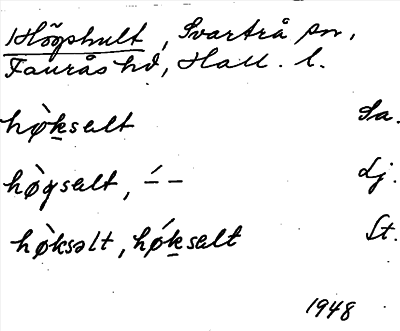 Högshult, Svartrå sn,
Faurås hd, Hall. l.
hø̀kselt Sa.
hø̀gselt, ´ – – Lj.
hø̀ksəlt, hǿkselt St.
1948